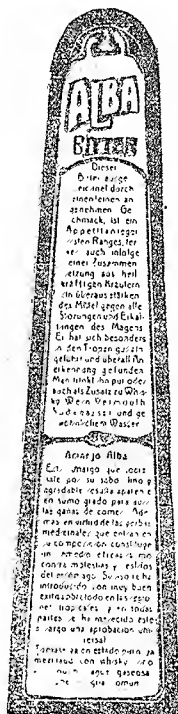 ALBA
BITTER
Dieser
Bitter ausge
zeichnet durch
einen feinen an
genehmen Ge
schmack, ist ein
Appetitanreger
ersten Ranges, fer
ner auch infolge
einer Zusammen
setzung aus heil
kräftigen Kräutern
ein überaus stärken
des Mittel gegen alle
Störungen und Erkäl-
tungen des Magens
Er hat sich besonders
in den Tropen
geführt und überall An
erkennung gefunden
Man trinkt ihn pur oder
auch als Zusatz zu Whis
ky Wein Vermouth
Sodawasser und ge
wöhnlichem Wasser
Amargo Alba
Este amargo que
sale por su sabor fino y
agradable resulta aparte
en sumo grado para
las ganas de comer Ade
mas en virtud de las yerbas
medicinales que entran en
su composicion constituye
un remedio eficaz
contra molestias y
del estomago Su uso se ha
introducido con muy buen
exito sobre todo en las
tropicales y en todas
partes se ha merecido este
amargo una aprobacion uni
versal
Tomase ya en estado puro ya
mezclado con whisky vino
agua gaseosa
agua comun